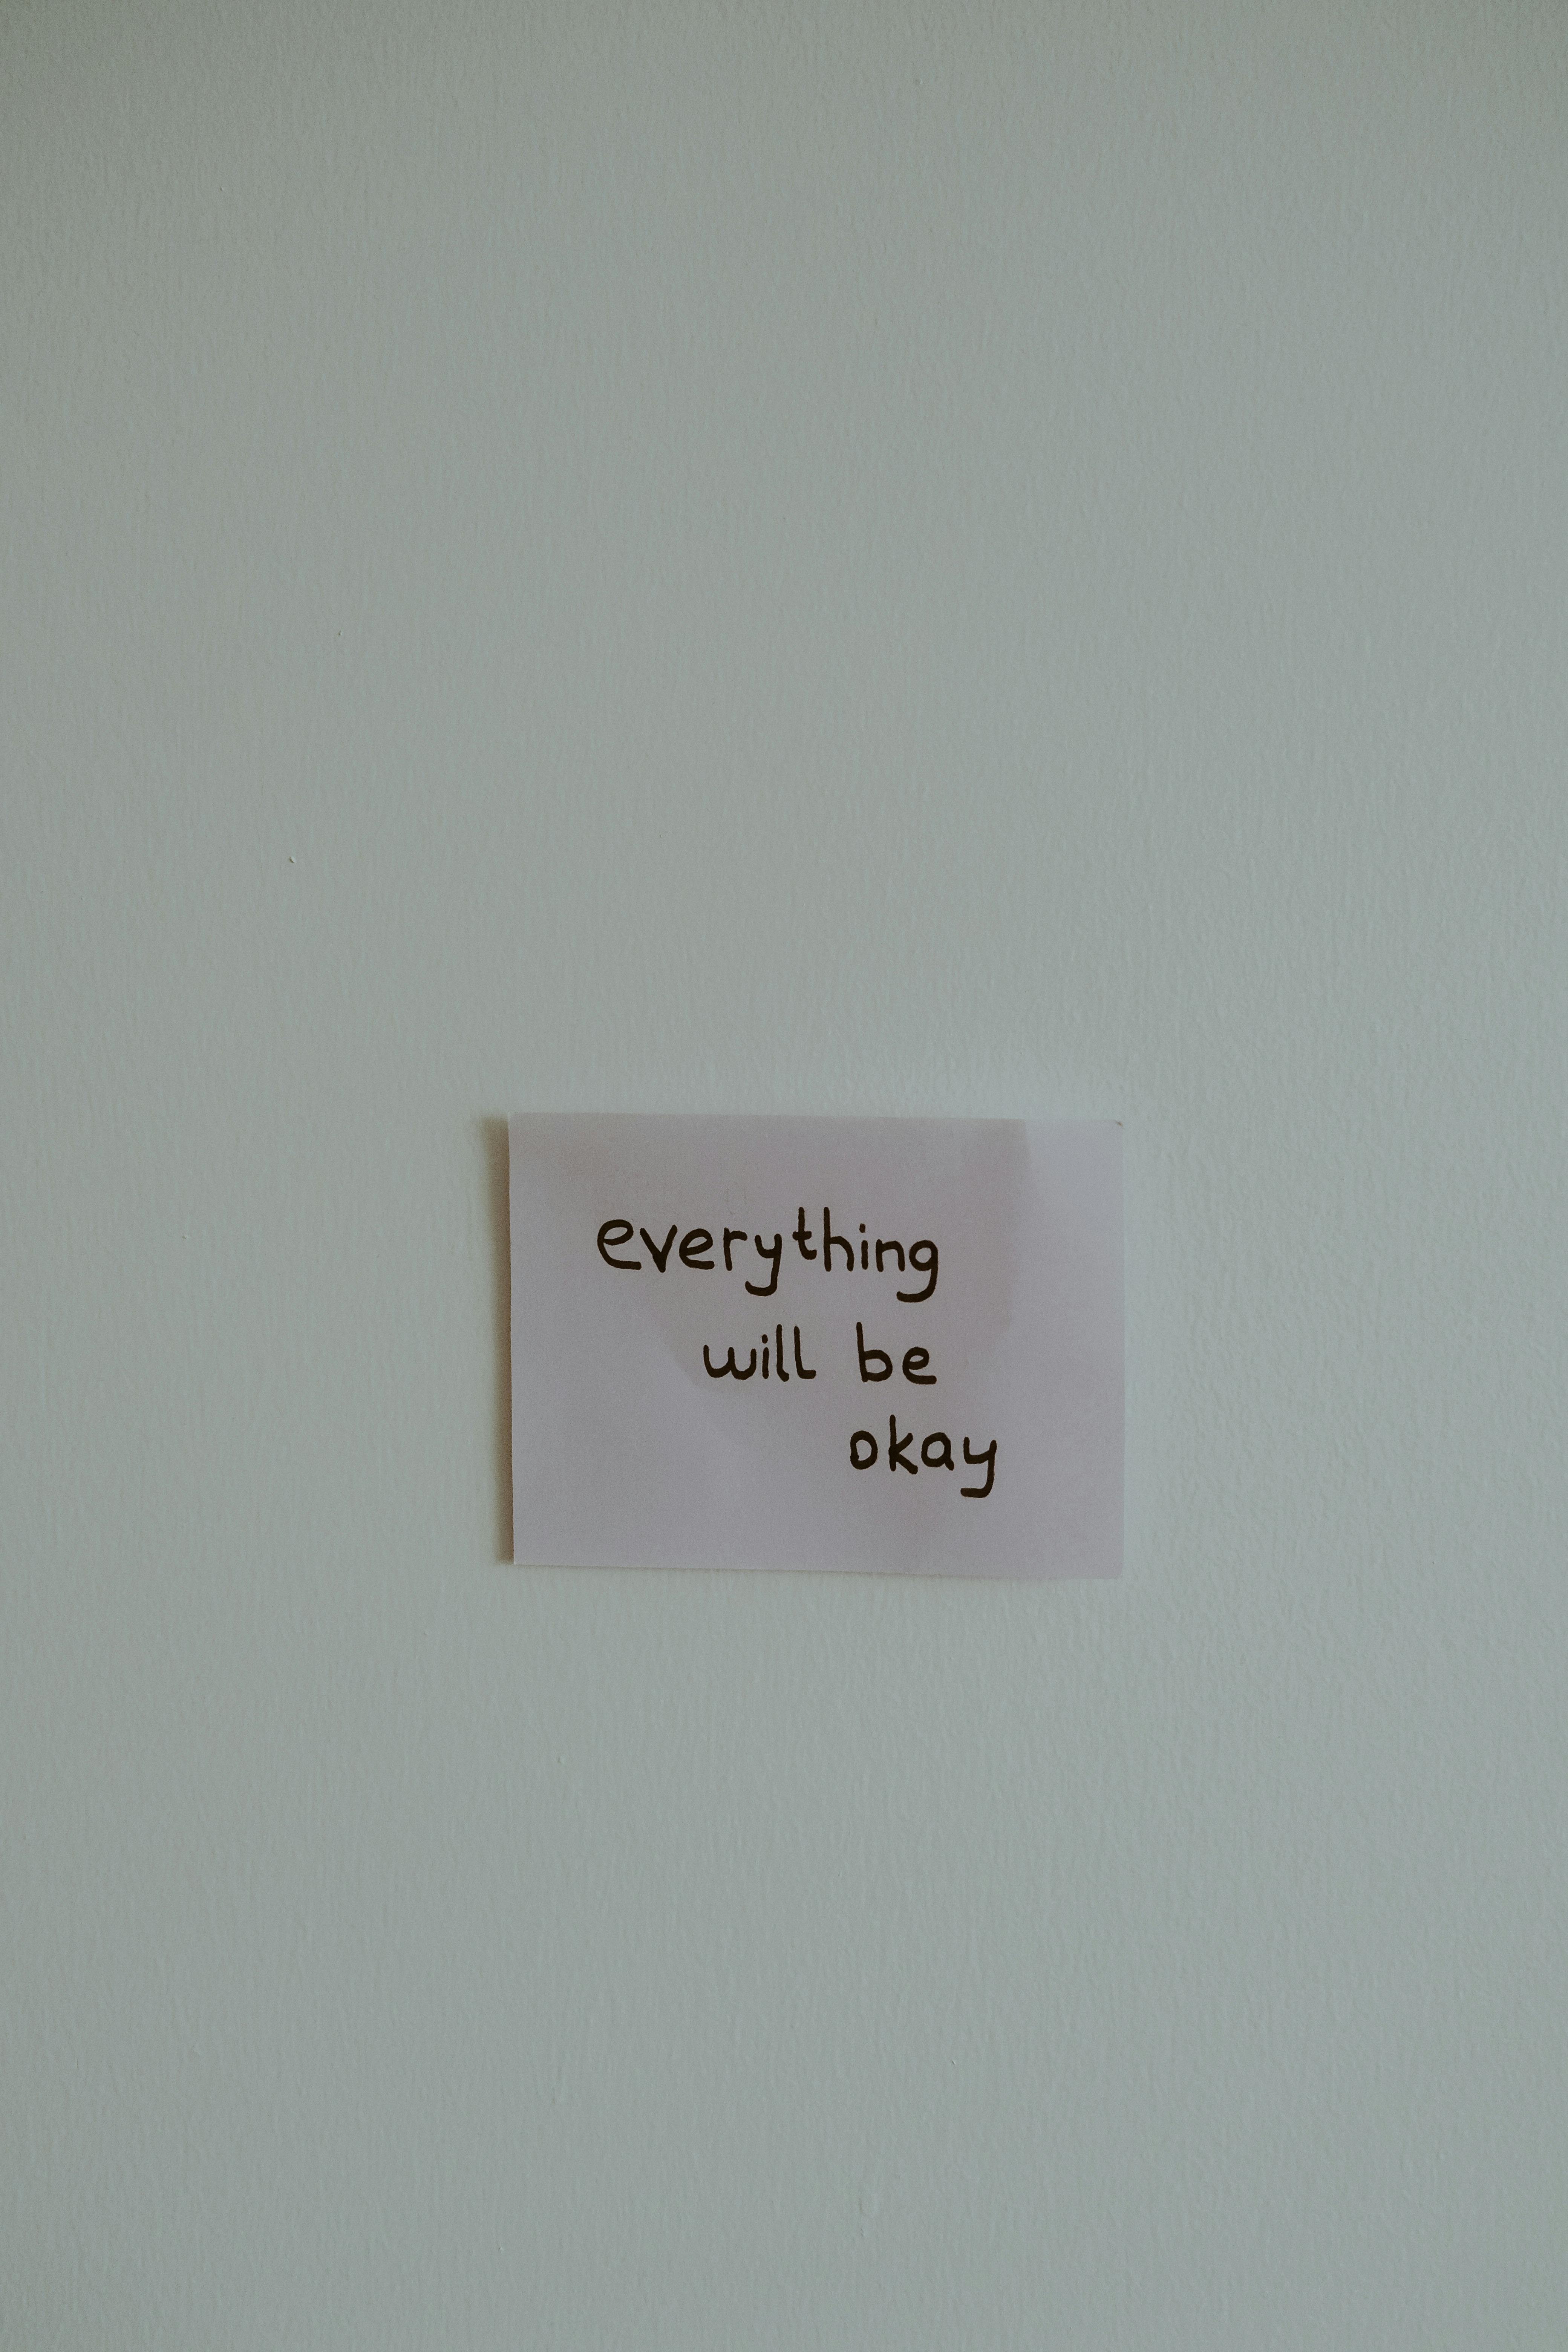 everything
will be
okay